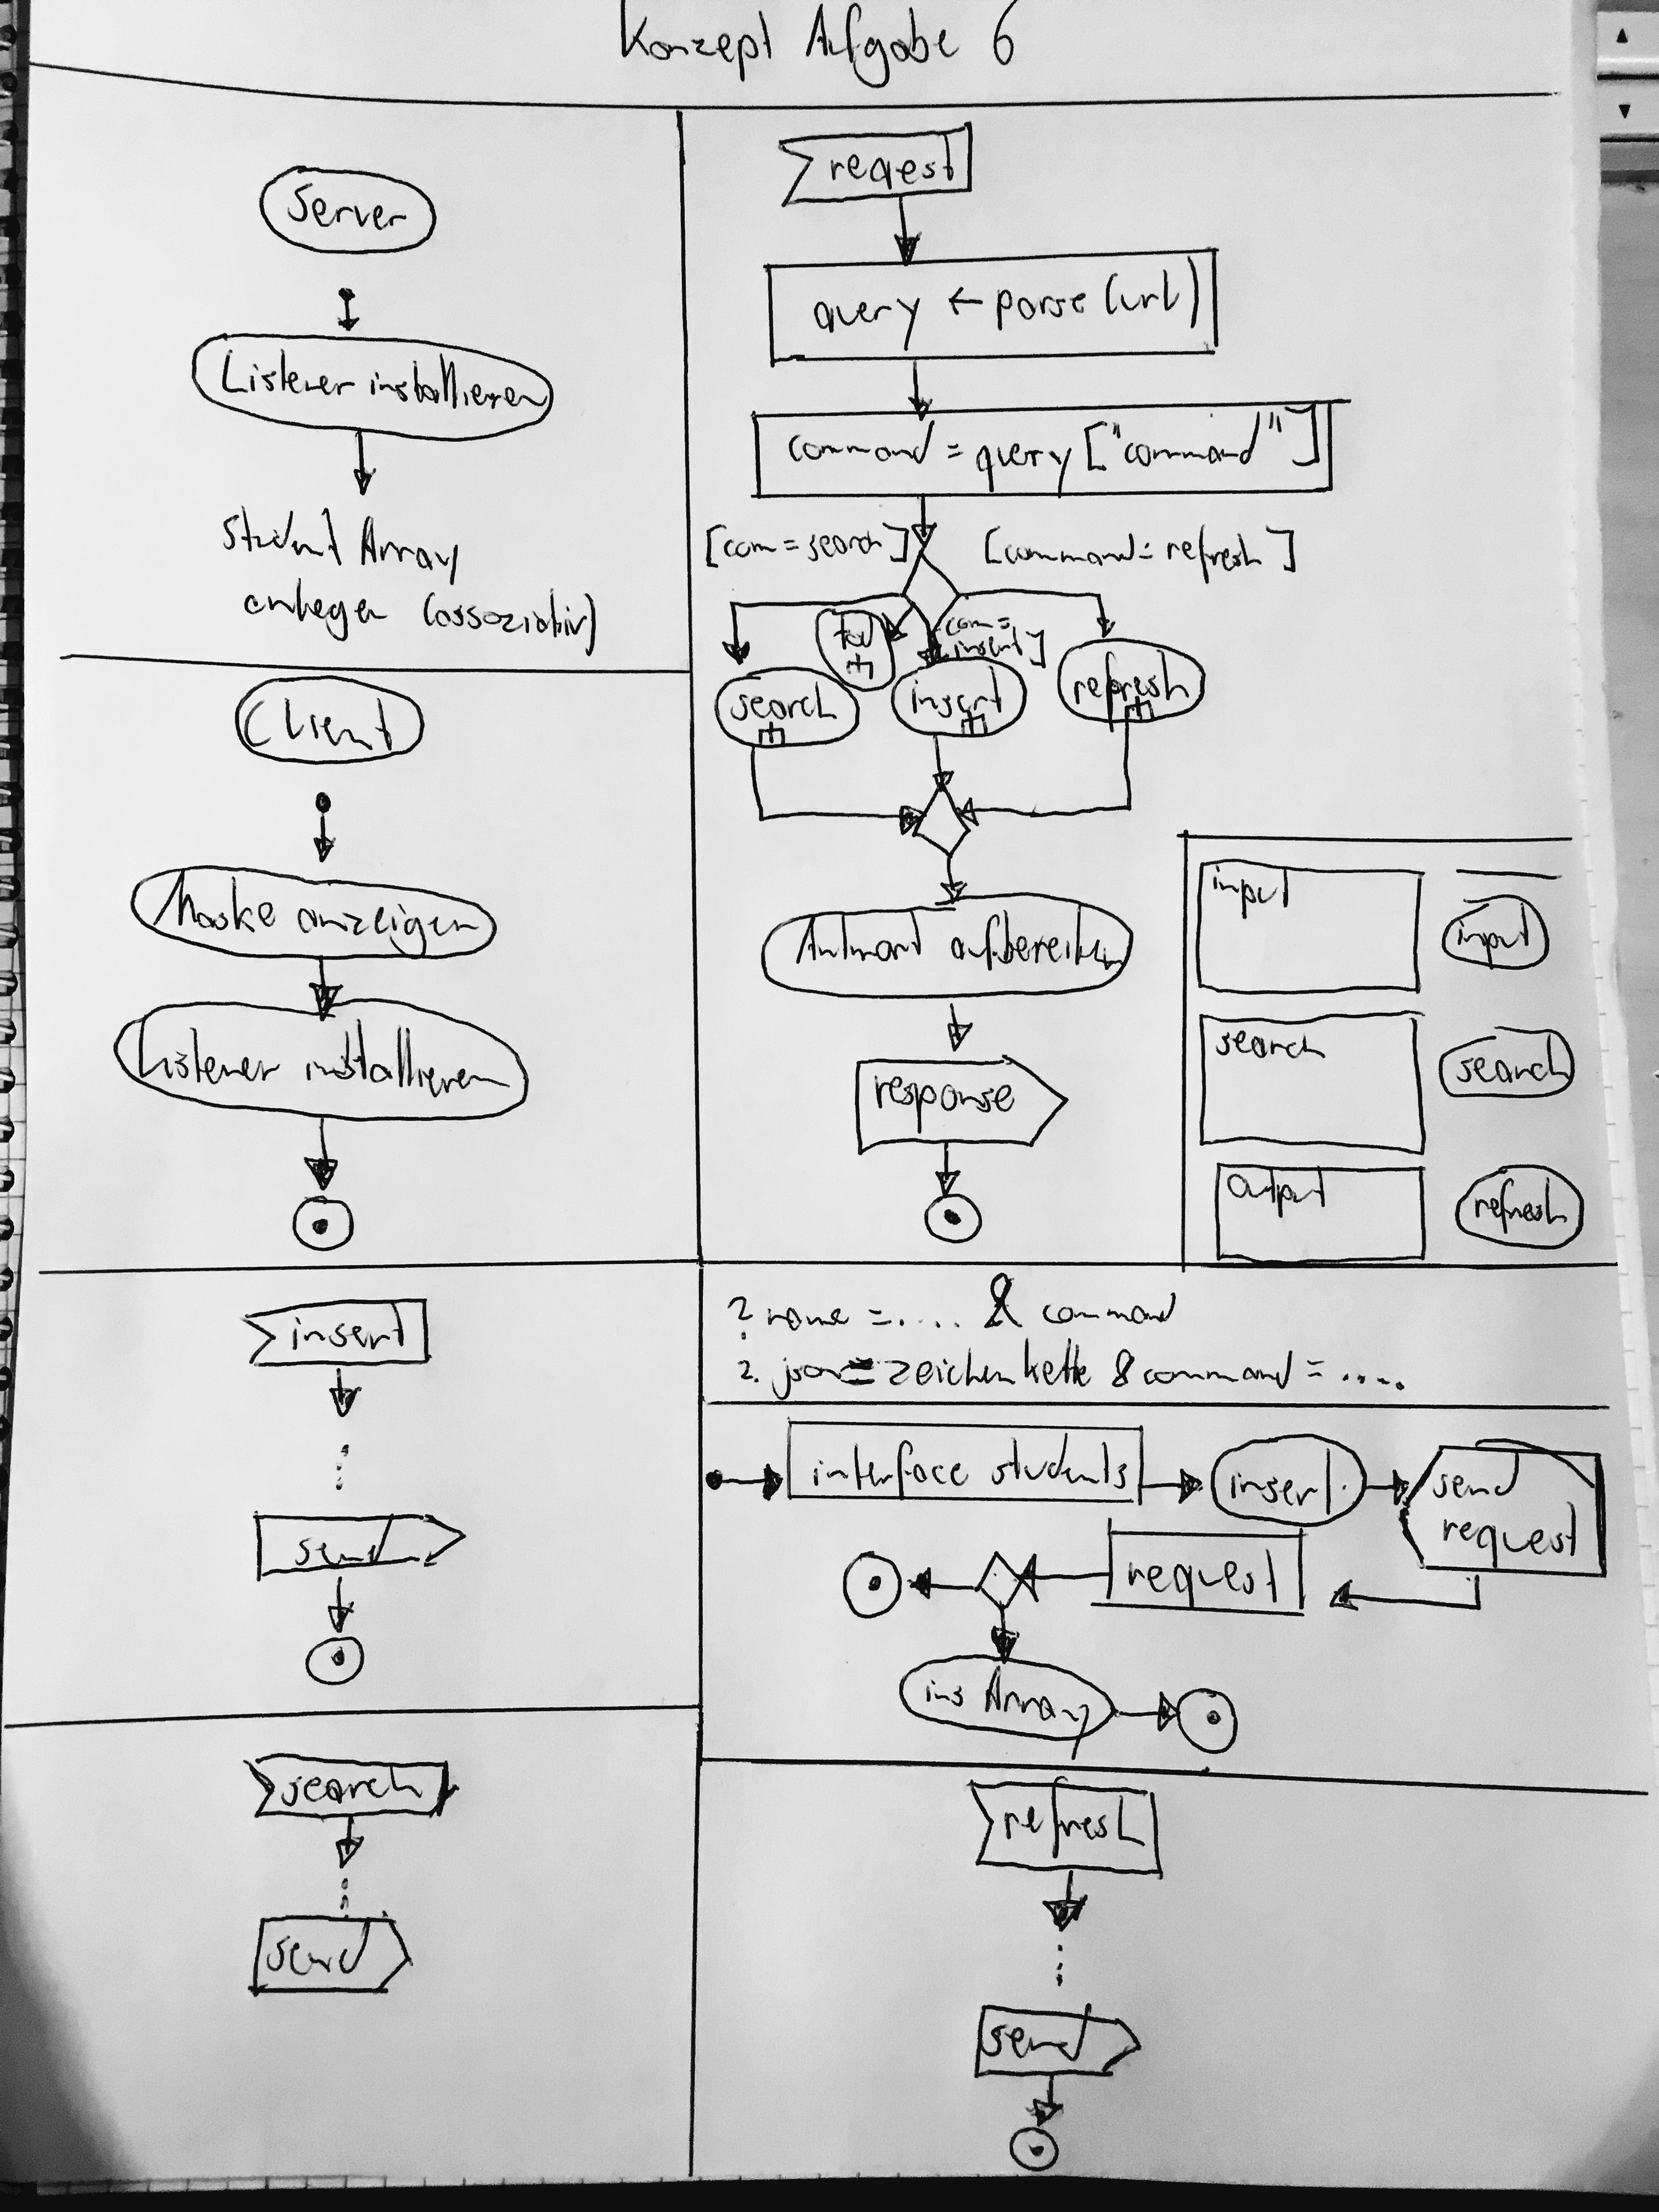 Konzept Aufgabe 6
Server
Listener installieren
Student Array
anlegen (assoziativ)
Client
Maske anzeigen
Listener installieren
insert
send
search
send
reqest
query ← parse (url)
command = query ["command"]
[com = search]
[command = refresh]
[com =
insert]
search
insert
refresh
Antwort aufbereiten
response
input
input
search
search
output
refresh
? name = .... & command
?. json = zeichenkette & command = ....
interface students
insert
send
request
request
ins Array
refresh
send